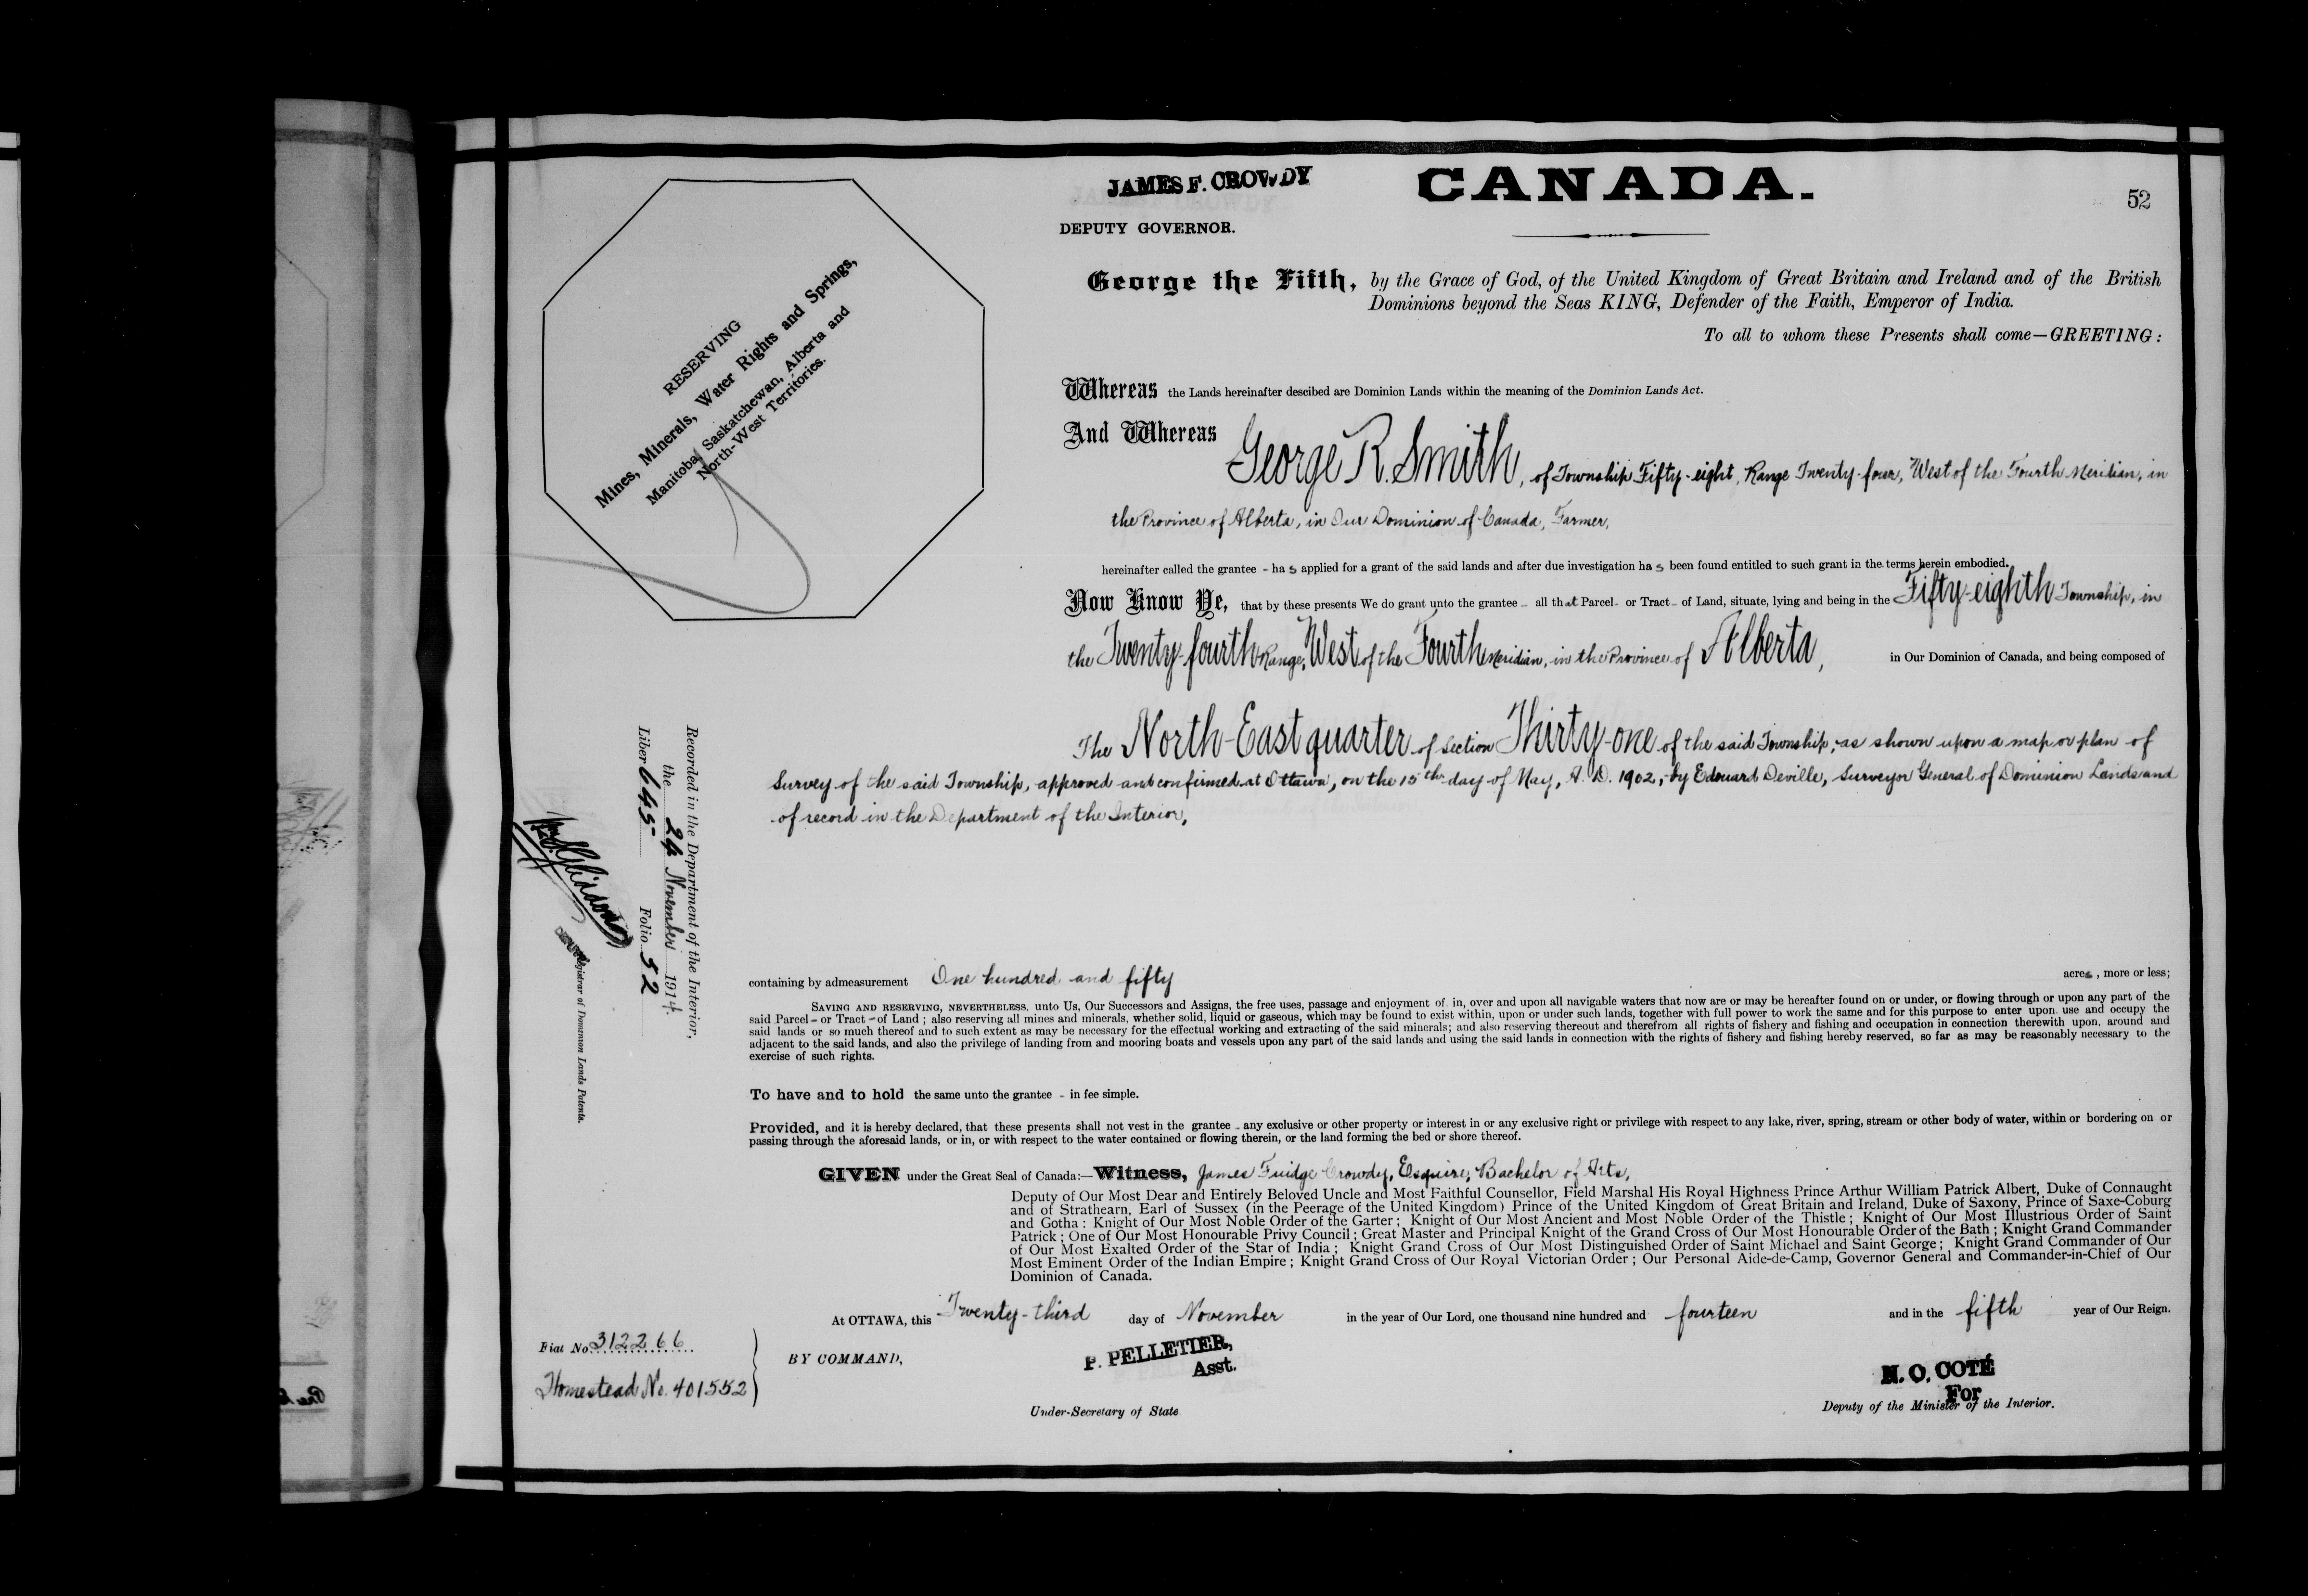 JAMES F. CROWDY
CANADA.
52
DEPUTY GOVERNOR.
George the Fifth, by the Grace of God, of the United Kingdom of Great Britain and Ireland and of the British
Dominions beyond the Seas KING, Defender of the Faith, Emperor of India.
To all to whom these Presents shall come—GREETING:
RESERVING
Mines, Minerals, Water Rights and Springs,
Manitoba, Saskatchewan, Alberta and
North-West Territories.
Whereas the Lands hereinafter descibed are Dominion Lands within the meaning of the Dominion Lands Act.
And Whereas George R. Smith, of Township Fifty-eight, Range Twenty-four, West of the Fourth Meridian, in
the Province of Alberta, in Our Dominion of Canada, Farmer,
hereinafter called the grantee - has applied for a grant of the said lands and after due investigation has been found entitled to such grant in the terms herein embodied.
Now Know Ye, that by these presents We do grant unto the grantee - all that Parcel - or Tract - of Land, situate, lying and being in the Fifty-eighth Township, in
the Twenty-fourth Range, West of the Fourth Meridian, in the Province of Alberta, in Our Dominion of Canada, and being composed of
The North-East quarter of Section Thirty-one of the said Township, as shown upon a map or plan of
Survey of the said Township, approved and confirmed at Ottawa, on the 15th day of May, A. D. 1902, by Edouard Deville, Surveyor General of Dominion Lands and
of record in the Department of the Interior,
Recorded in the Department of the Interior,
the 24 November 1914.
Liber 645 Folio 52
Registrar of Dominion Lands Patents.
containing by admeasurement One hundred and fifty acres, more or less;
SAVING AND RESERVING, NEVERTHELESS, unto Us, Our Successors and Assigns, the free uses, passage and enjoyment of, in, over and upon all navigable waters that now are or may be hereafter found on or under, or flowing through or upon any part of the
said Parcel - or Tract - of Land; also reserving all mines and minerals, whether solid, liquid or gaseous, which may be found to exist within, upon or under such lands, together with full power to work the same and for this purpose to enter upon, use and occupy the
said lands or so much thereof and to such extent as may be necessary for the effectual working and extracting of the said minerals; and also reserving thereout and therefrom all rights of fishery and fishing and occupation in connection therewith upon, around and
adjacent to the said lands, and also the privilege of landing from and mooring boats and vessels upon any part of the said lands and using the said lands in connection with the rights of fishery and fishing hereby reserved, so far as may be reasonably necessary to the
exercise of such rights.
To have and to hold the same unto the grantee - in fee simple.
Provided, and it is hereby declared, that these presents shall not vest in the grantee - any exclusive or other property or interest in or any exclusive right or privilege with respect to any lake, river, spring, stream or other body of water, within or bordering on or
passing through the aforesaid lands, or in, or with respect to the water contained or flowing therein, or the land forming the bed or shore thereof.
GIVEN under the Great Seal of Canada:—Witness, James Fuidge Crowdy, Esquire, Bachelor of Arts,
Deputy of Our Most Dear and Entirely Beloved Uncle and Most Faithful Counsellor, Field Marshal His Royal Highness Prince Arthur William Patrick Albert, Duke of Connaught
and of Strathearn, Earl of Sussex (in the Peerage of the United Kingdom) Prince of the United Kingdom of Great Britain and Ireland, Duke of Saxony, Prince of Saxe-Coburg
and Gotha: Knight of Our Most Noble Order of the Garter; Knight of Our Most Ancient and Most Noble Order of the Thistle; Knight of Our Most Illustrious Order of Saint
Patrick; One of Our Most Honourable Privy Council; Great Master and Principal Knight of the Grand Cross of Our Most Honourable Order of the Bath; Knight Grand Commander
of Our Most Exalted Order of the Star of India; Knight Grand Cross of Our Most Distinguished Order of Saint Michael and Saint George; Knight Grand Commander of Our
Most Eminent Order of the Indian Empire; Knight Grand Cross of Our Royal Victorian Order; Our Personal Aide-de-Camp, Governor General and Commander-in-Chief of Our
Dominion of Canada.
At OTTAWA, this Twenty-third day of November in the year of Our Lord, one thousand nine hundred and fourteen and in the fifth year of Our Reign.
Fiat No. 312266
Homestead No. 401552
BY COMMAND,
P. PELLETIER,
Asst.
Under-Secretary of State
N. O. COTÉ
For
Deputy of the Minister of the Interior.